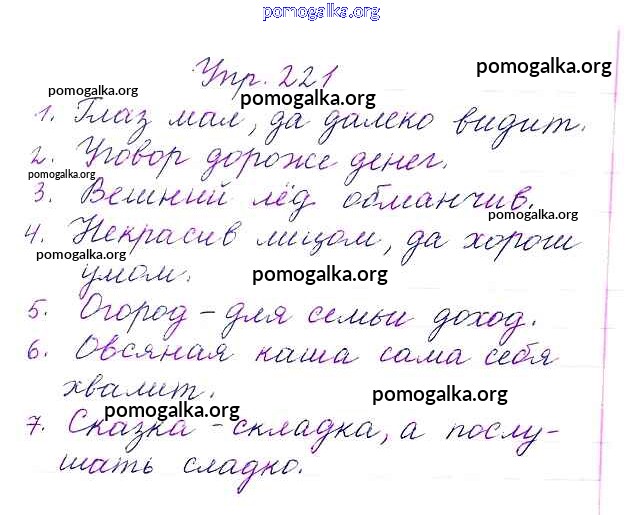 pomogalka.org
Упр. 221
pomogalka.org
pomogalka.org
pomogalka.org
1. Глаз мал, да далеко видит.
2. Уговор дороже денег.
pomogalka.org
3. Вешний лёд обманчив.
pomogalka.org
4. Некрасив лицом, да хорош
pomogalka.org
умом.
pomogalka.org
5. Огород – для семьи доход.
6. Овсяная каша сама себя
хвалит.
pomogalka.org
pomogalka.org
7. Сказка – складка, а послу-
шать сладко.